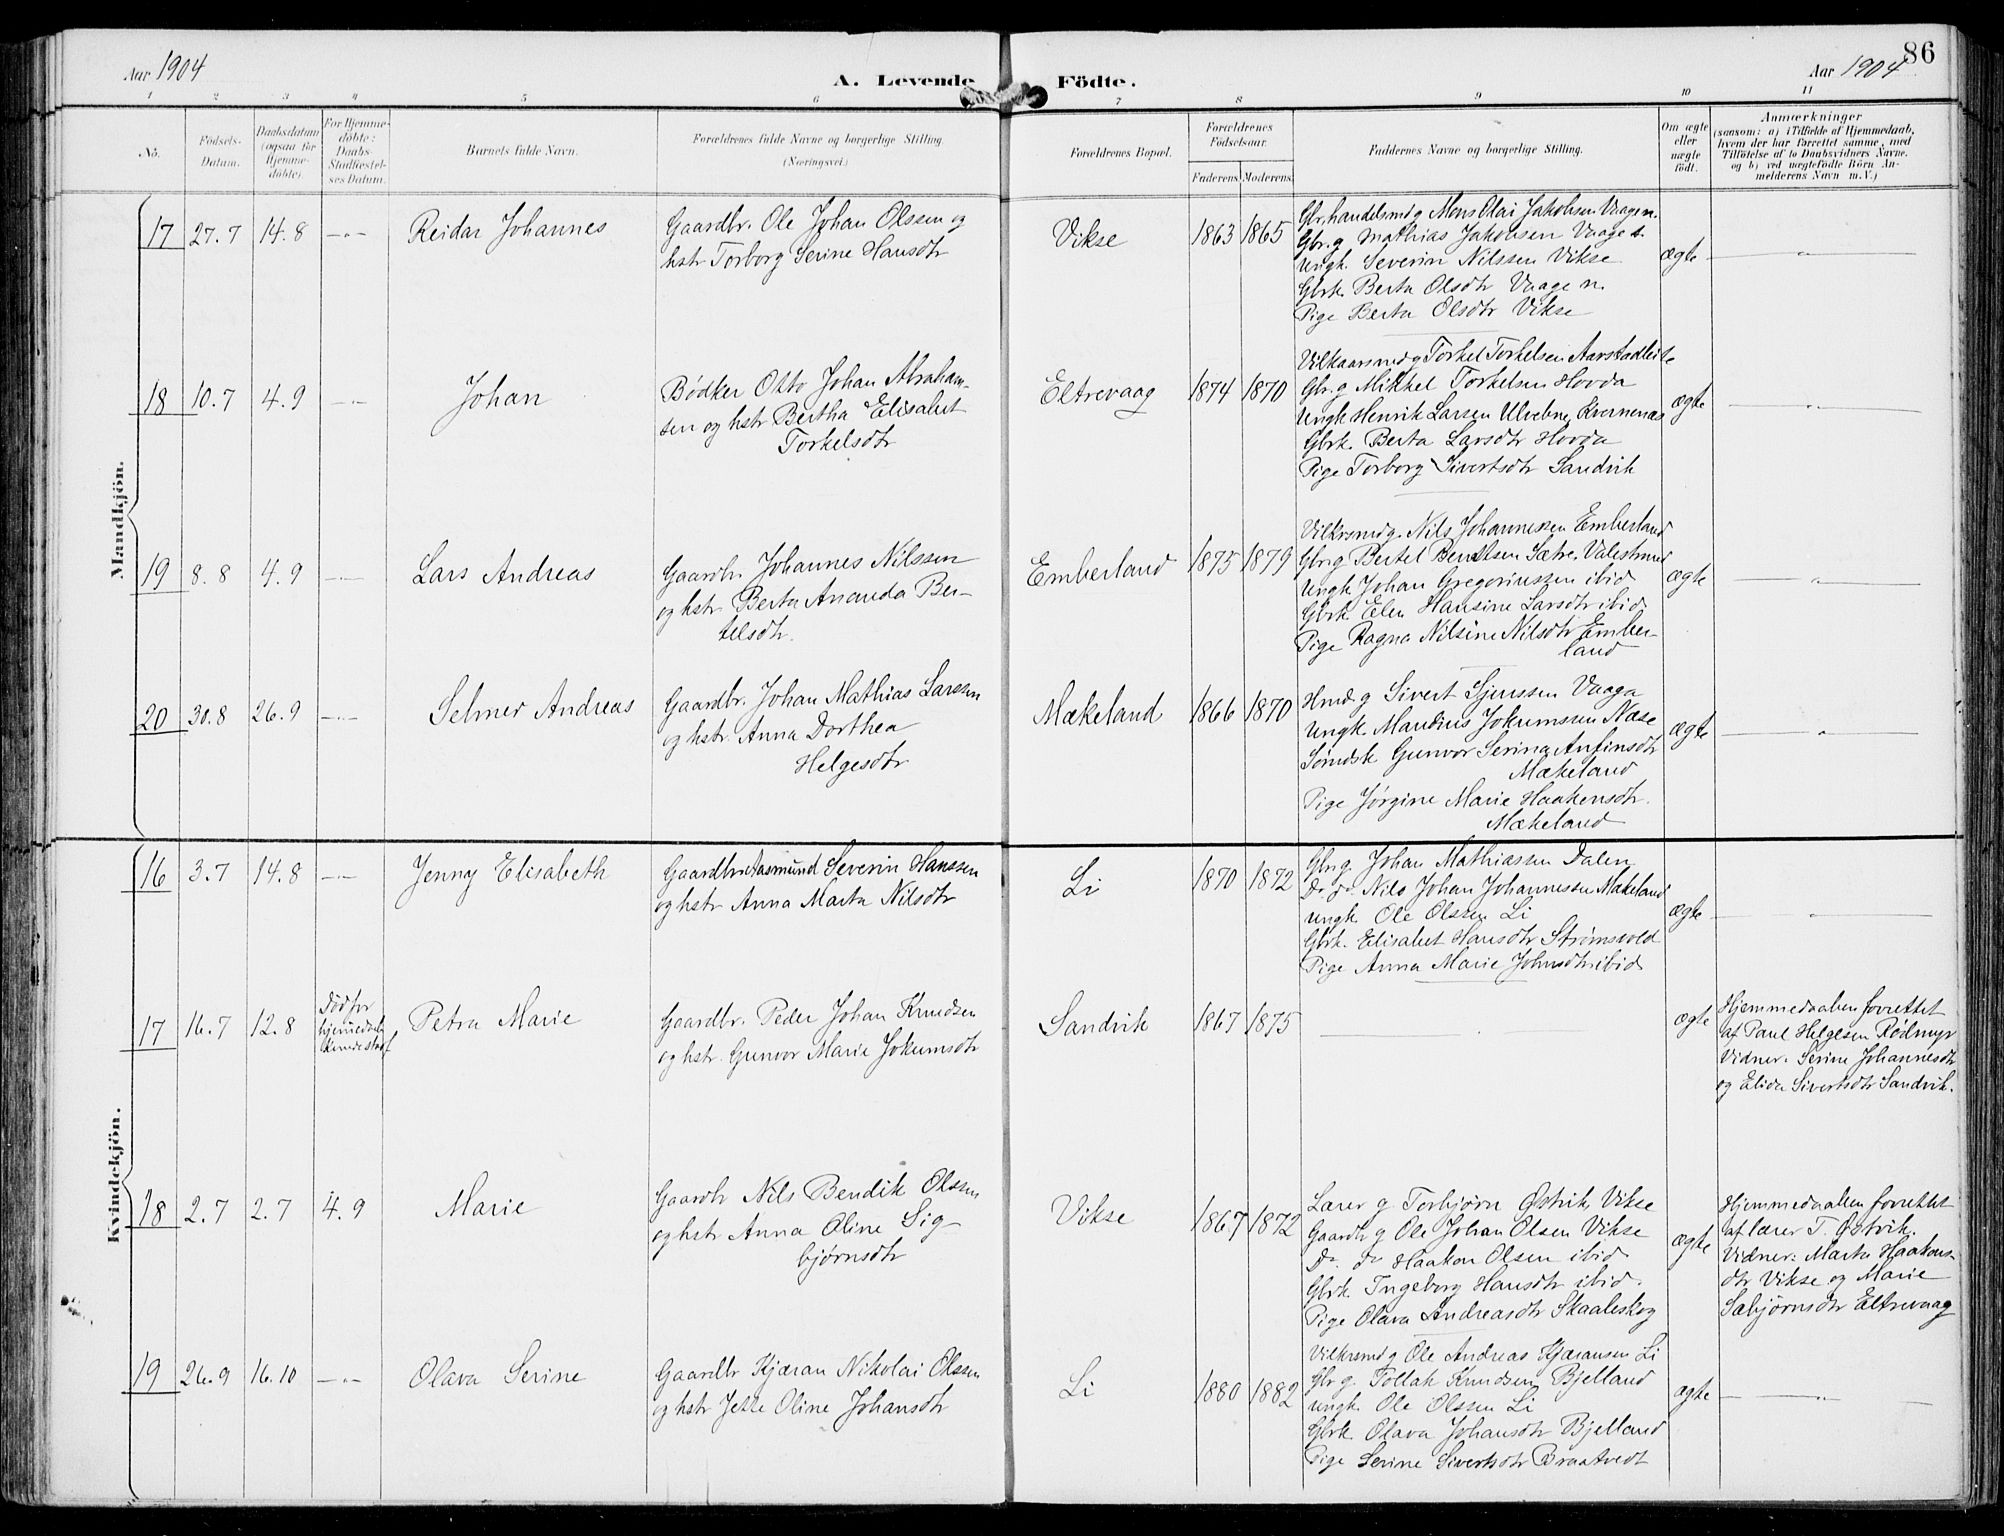 86
Aar 1904
A. Levende Födte.
Aar 1904
1 2 3 4 5 6 7 8 9 10 11
No.
Födsels-
Datum.
Daabsdatum
(ogsaa for
Hjemme-
döbte).
For Hjemme-
döbte:
Daabs-
Stadfæstel-
ses Datum.
Barnets fulde Navn.
Forældrenes fulde Navne og borgerlige Stilling.
(Næringsvei.)
Forældrenes Bopæl.
Forældrenes
Födselsaar.
Faderens. Moderens.
Faddernes Navne og borgerlige Stilling.
Om ægte
eller
uægte
född.
Anmærkninger
(saasom: a) i Tilfælde af Hjemmedaab,
hvem der har forrettet samme, med
Tilföielse af to Daabsvidners Navne.
og b) ved uægtefödte Börn An-
melderens Navn m. V.)
Mandkjön.
17 27.7 14.8 -„- Reidar Johannes
Gaardbr. Ole Johan Olssen og
hstr Torborg Serine Hansdtr
Vikse 1863 1865
Gbr.handelsmd g Mons Olai Jakobsen Vaage n.
Gbr. g Mathias Jakobsen Vaage s.
Ungk. Severin Nilssen Vikse
Gbrk. Berta Olsdtr Vaage n.
Pige Berta Olsdtr Vikse
ægte -„-
18 10.7 4.9 -„- Johan
Bødker Otto Johan Abraham-
sen og hstr Bertha Elisabet
Torkelsdtr
Eltrevaag 1874 1870
Vilkaarsmd g Torkel Torkelsen Aarstadleite
Gbr. g Mikkel Torkelsen Hovda
Ungk Henrik Larsen Ulvebne, Kvernenæs
Gbrk. Berta Larsdtr Hovda
Pige Torborg Sivertsdtr Sandvik
ægte -„-
19 8.8 4.9 -„- Lars Andreas
Gaardbr. Johannes Nilssen
og hstr Berta Ananda Ber-
telsdtr.
Emberland 1875 1879
Vilkrsmd g. Nils Johannessen Emberland
Gbr g Bertel Bentsen Sætre, Valestrand
Ungk Johan Gregoriussen ibid
Gbrk Elen Hansine Larsdtr ibid.
Pige Ragna Nilsine Nilsdtr Ember-
land
ægte -„-
20 30.8 26.9 -„- Selmer Andreas
Gaardbr. Johan Mathias Larssen
og hstr. Anna Dorthea
Helgesdtr
Mækeland 1866 1870
Hmd g Sivert Sjurssen Vaaga
Ungk Mandius Jokumssen Næse
Gunvor Serina Anfinsdtr
Mækeland
Pige Jørgine Marie Haakensdtr.
Mækeland
ægte -„-
Kvindekjön.
16 3.7 14.8 -„- Jenny Elisabeth
Gaardbr Aasmund Severin Hanssen
og hstr Anna Marta Nilsdtr
Li 1870 1872
Gbr g Johan Mathiassen Dalen
Do do Nils Johan Johannessen Mækeland
Ungk Ole Olssen Li
Gbrk. Elisabet Hansdtr Strømsvold
Pige Anna Marie Johnsdtr ibid
ægte -„-
17 16.7 12.8
Død før
Petra Marie
Gaardbr. Peder Johan Knudsen
og hstr. Gunvor Marie Jokumsdtr
Sandvik 1867 1875
ægte
Hjemmedaaben forrettet
af Paul Helgesen Rødmyr
Vidner. Serine Johannesdtr
og Elida Sivertsdtr Sandvik.
18 2.7 2.7 4.9 Marie
Gaardbr Nils Bendik Olssen
og hstr Anna Oline Sig-
bjørnsdtr
Vikse 1867 1872
Lærer g Torbjørn Østvik, Vikse
Gaardb g Ole Johan Olsen Vikse
Do. do Haakon Olsen ibid
Gbrk Ingeborg Hansdtr ibid.
Pige Olava Andreasdtr Skaaleskog
ægte
Hjemmedaaben forrettet
af lærer T. Østvik.
Vidner: Marta Haakons-
dtr Vikse og Marie
Sæbjørnsdtr Eltrevaag
19 26.9 16.10 -„- Olava Serine
Gaardbr Kjæran Nikolai Olssen
og hstr Jette Oline Johansdtr
Li 1880 1882
Vilkrsmd g Ole Andreas Kjæransen Li
Gbr g. Tollak Knudsen Bjelland
ungk Ole Olssen Li
Gbrk. Olava Johansdtr Bjelland
Pige Serine Sivertsdtr Braatvedt
ægte -„-